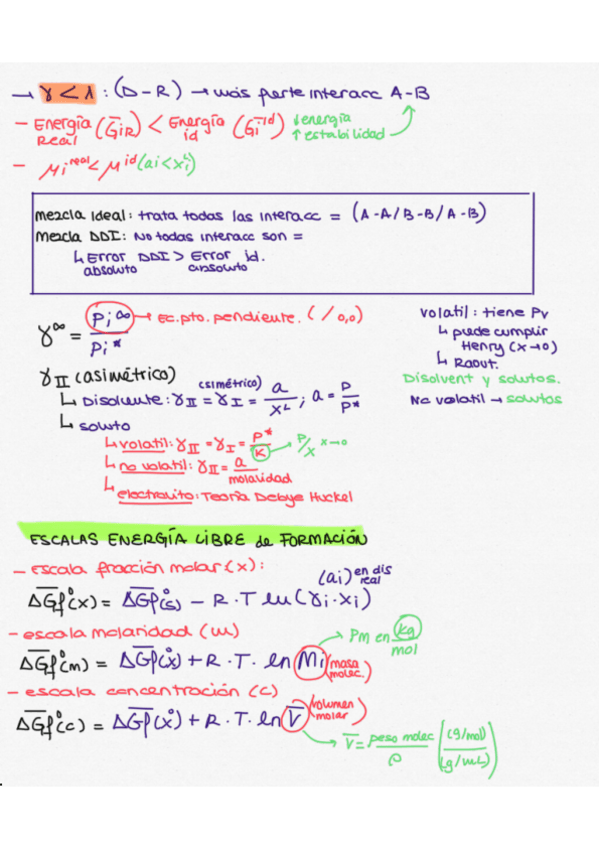 → γ < 1 : (D-R) → más fuerte interacc A-B
- Energía (G̅iR) < Energía (G̅i^id) ↓energía
Real id ↑estabilidad
- μi^real < μ^id (ai<xi^L)
mezcla ideal: trata todas las interacc = (A-A/B-B/A-B)
mezcla DDI: No todas interacc son =
↳ Error DDI > Error id.
absoluto absoluto
γ^∞ = Pi^∞ / Pi* → Ec. pto. pendiente. ( / 0,0)
Volatil: tiene Pv
↳ puede cumplir
Henry (x→0)
↳ Raout.
Disolvent y solutos.
No volatil → solutos
γII (asimétrico)
↳ Disolvente: γII = γI (simétrico) = a / x^L ; a = P / P*
↳ soluto
↳ volatil: γII = γI = P* / K → P/x x→0
↳ no volatil: γII = a / molalidad
↳ electrolito: Teoría Debye Huckel
ESCALAS ENERGÍA LIBRE de FORMACIÓN
- escala fracción molar (x):
ΔG̅f°(x) = ΔG̅f°(s) - R·T ln(γi·xi) (ai) en dis real
- escala molaridad (m)
ΔG̅f°(m) = ΔG̅f°(x) + R·T·ln Mi (masa molec.) → Pm en kg/mol
- escala concentración (c)
ΔG̅f°(c) = ΔG̅f°(x) + R·T·ln V̅ (volumen molar)
→ V̅ = peso molec / ρ ((g/mol) / (g/mL))